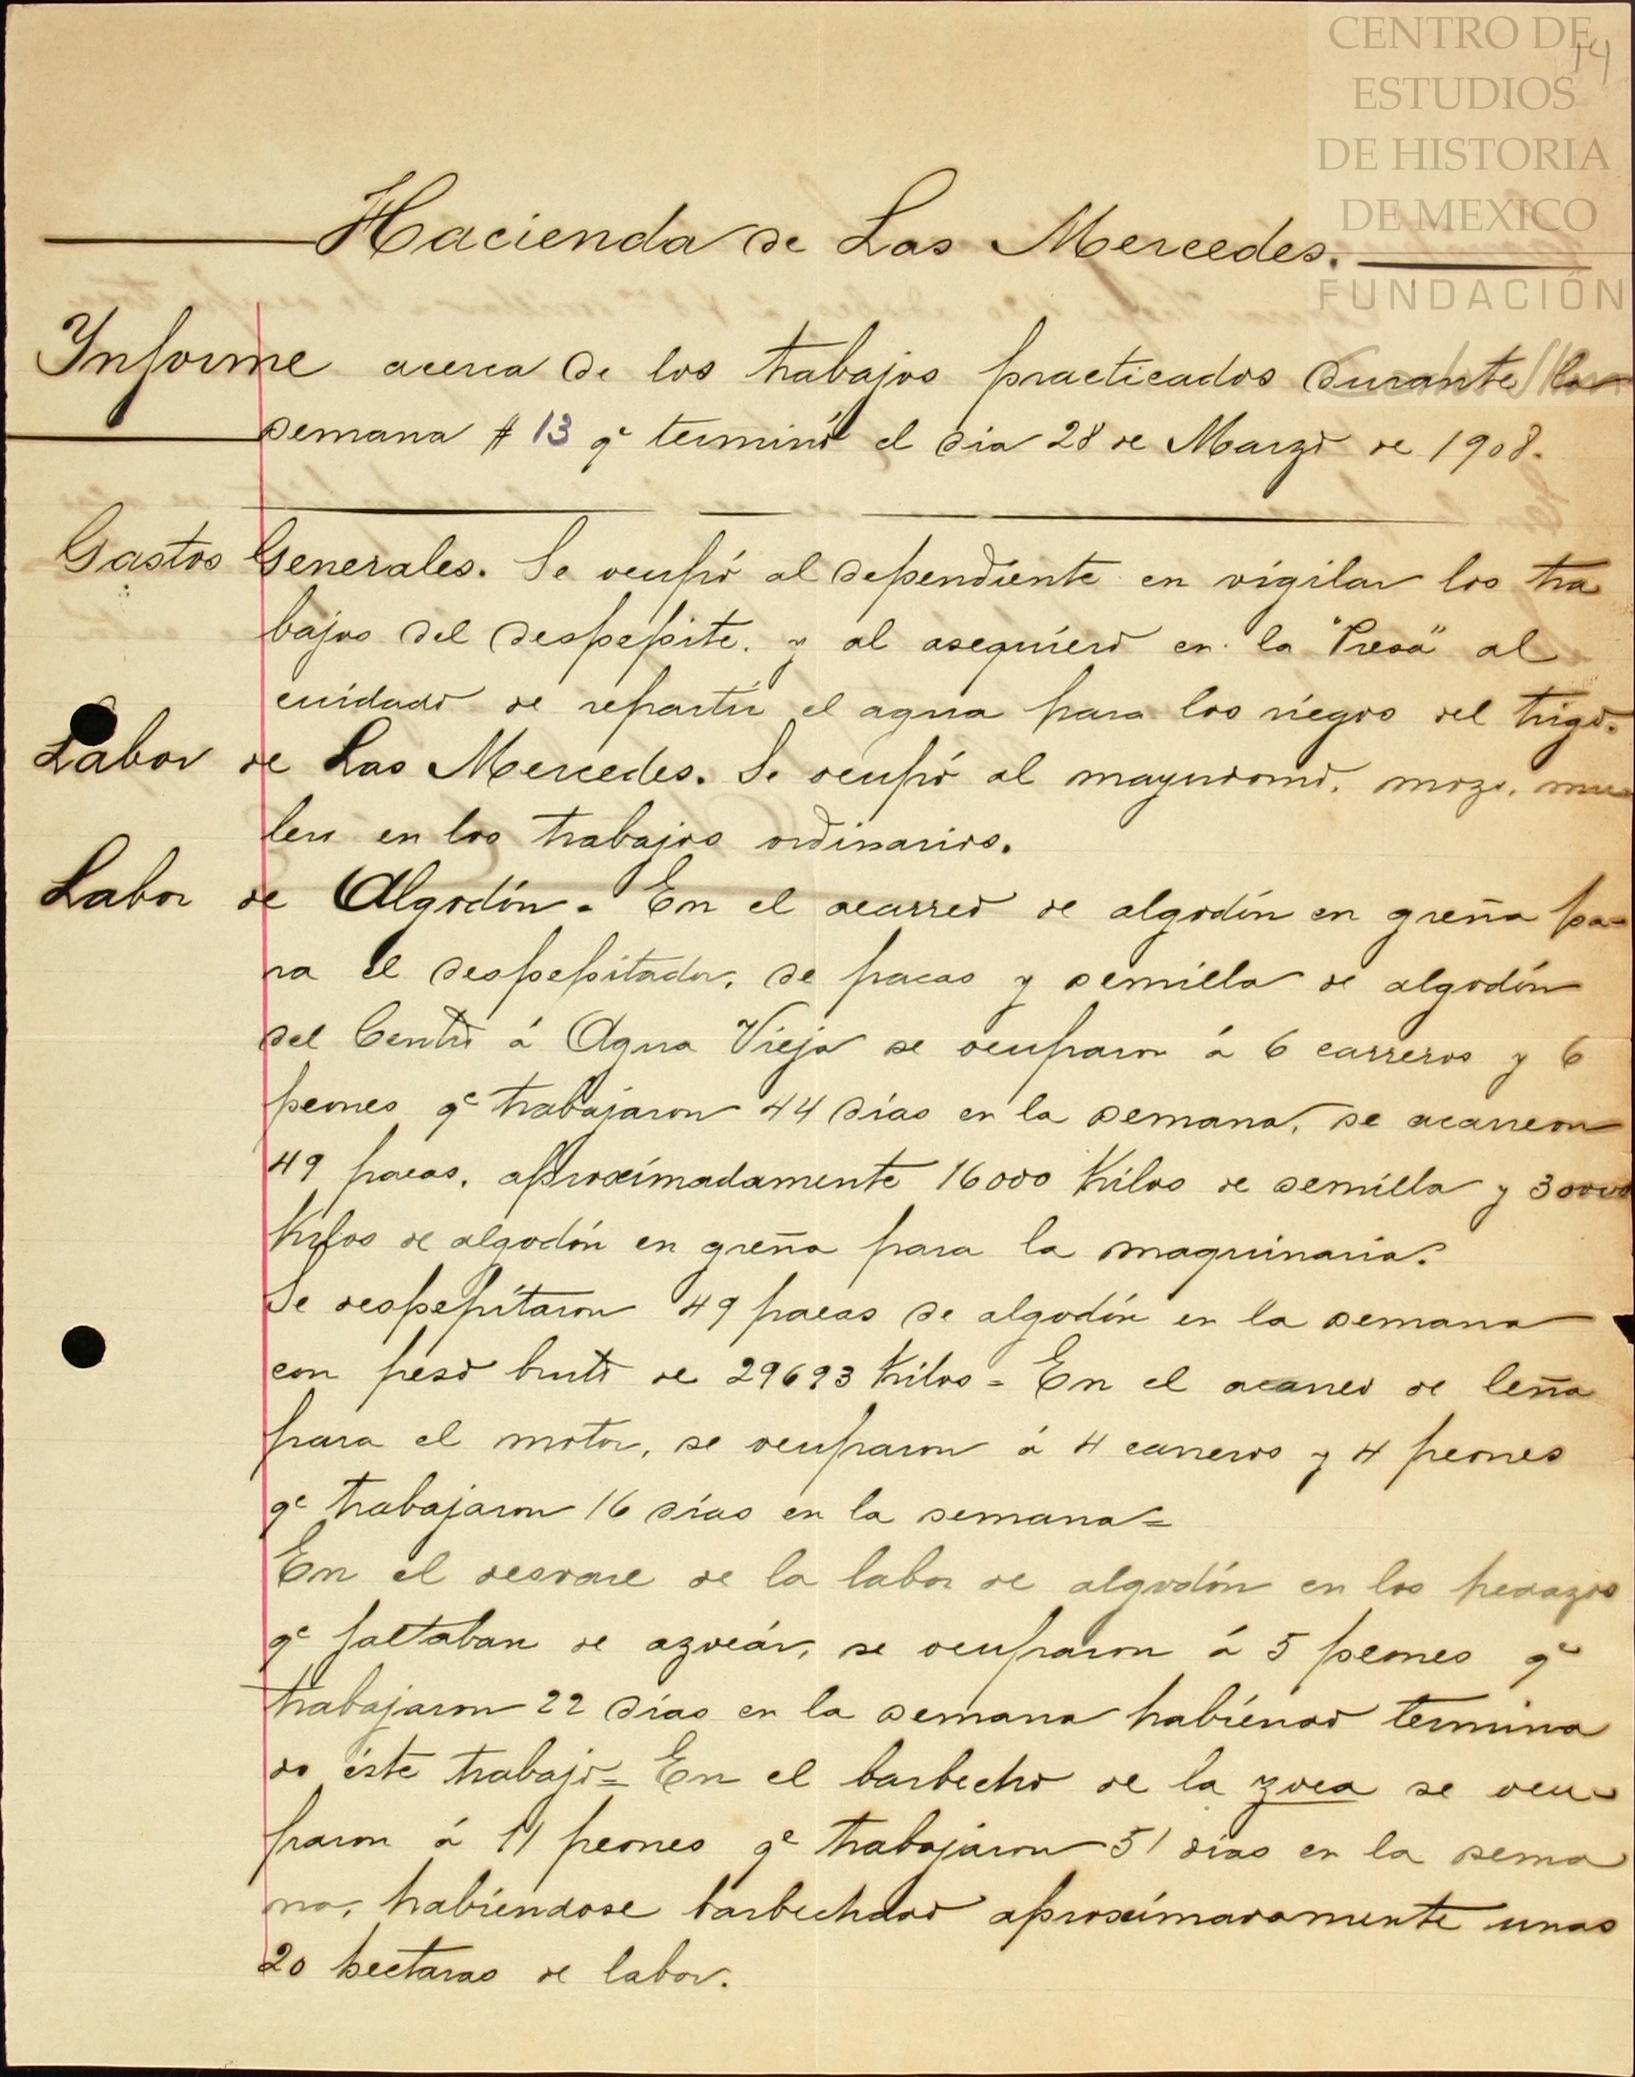 CENTRO DE
ESTUDIOS
DE HISTORIA
DE MEXICO
FUNDACIÓN
14
Hacienda de Las Mercedes.
Informe acerca de los trabajos practicados durante la
semana # 13 qe terminó el dia 28 de Marzo de 1908.
Gastos Generales. Se ocupó al dependiente en vigilar los tra
bajos del despepite. y al asequiero en la "Presa" al
cuidado de repartir el agua para los riegos del trigo.
Labor de Las Mercedes. Se ocupó al mayordomo, mozo, mu
lero en los trabajos ordinarios.
Labor de Algodón. En el acarreo de algodón en greña pa-
ra el despepitador, de pacas y semilla de algodón
del Centro á Agua Vieja se ocuparon á 6 carreros y 6
peones qe trabajaron 44 días en la semana, se acarreron
49 pacas, aproximadamente 16000 Kilos de semilla y 30000
Kilos de algodón en greña para la maquinaria.
Se despepitaron 49 pacas de algodón en la semana
con peso bruto de 29693 Kilos = En el acarreo de leña
para el motor, se ocuparon á 4 carreros y 4 peones
qe trabajaron 16 días en la semana =
En el desvare de la labor de algodón en los pedazos
qe faltaban de azocár, se ocuparon á 5 peones qe
trabajaron 22 días en la semana habiendo termina
do éste trabajo = En el barbecho de la zoca se ocu-
paron á 11 peones qe trabajaron 51 días en la sema
na, habiéndose barbechado aproximadamente unas
20 hectaras de labor.